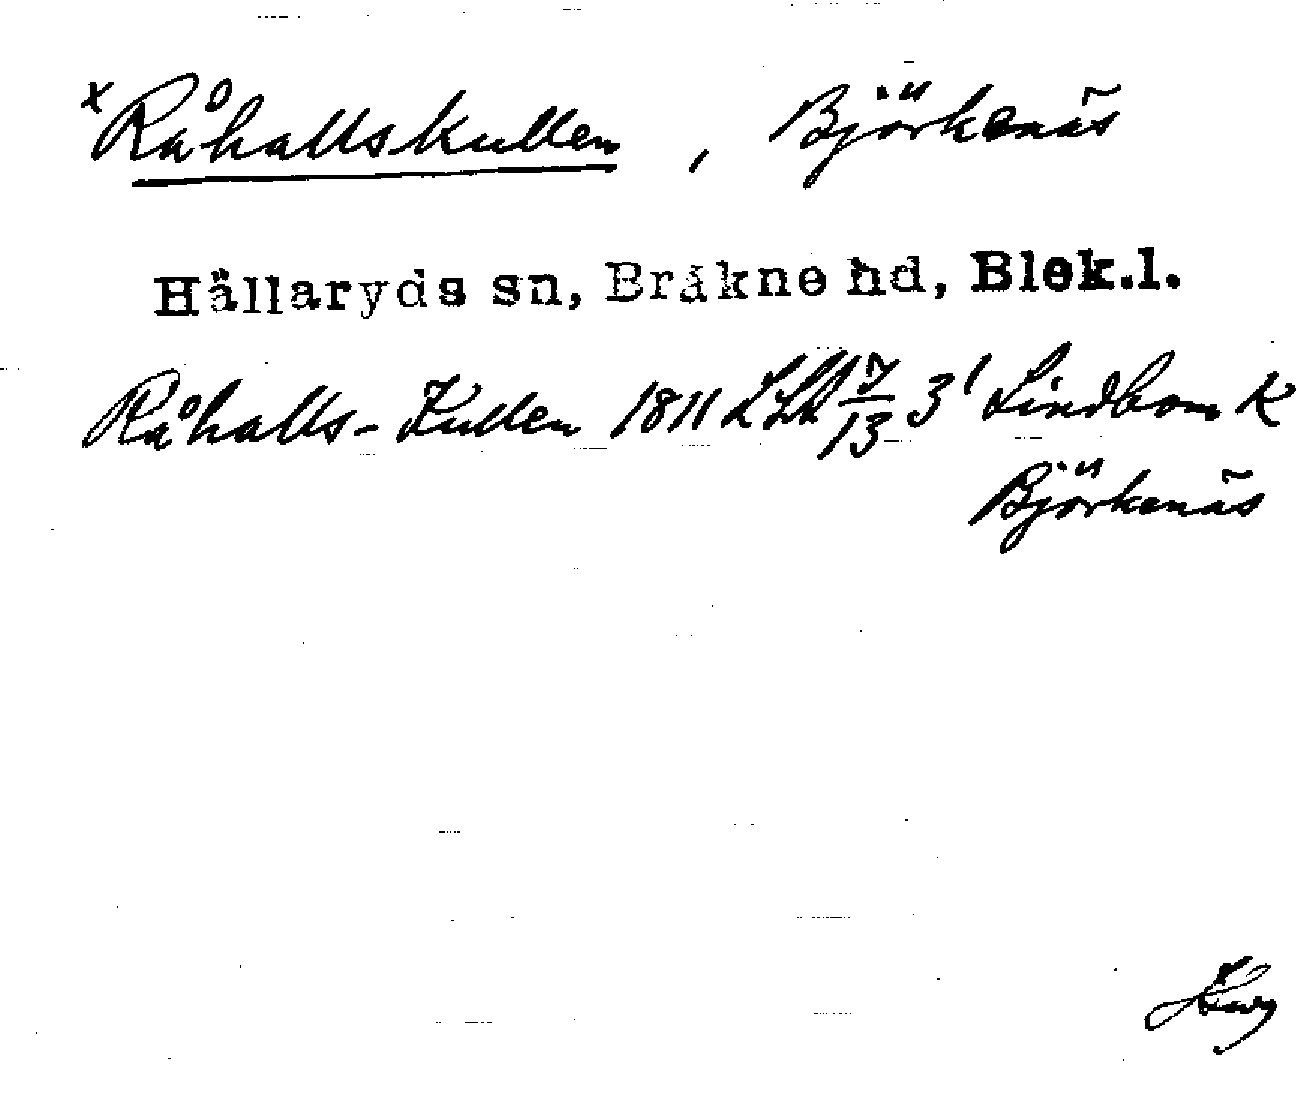 x Råhallskullen, Björkenäs
Hällaryds sn, Bräkne hd, Blek.l.
Råhalls-Kullen 1811 LSA 7/13 3' Lindbom K
Björkenäs